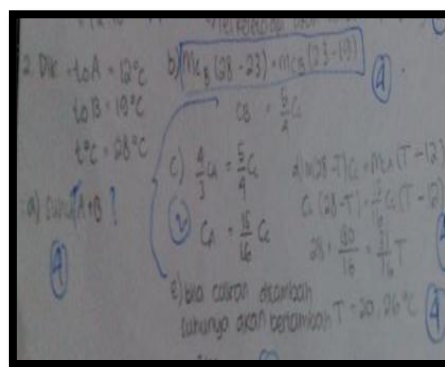 2. Dik = t0 A = 12°C
t0 B = 19°C
t°C = 28°C
a) A+B ?
4
b) mc_B (28 - 23) = mc_B (23 - 19)
4
c_B = 5/4 c_c
c) 4/3 c_A = 5/4 c_c
2
c_A = 15/16 c_c
d) m(28-T) c_c = mc_A (T-12)
c_c (28-T) = 15/16 c_c (T-12)
28 + 180/16 = 31/16 T
T = 20,26°C
4
e) bila cairan ditambah
suhunya akan bertambah